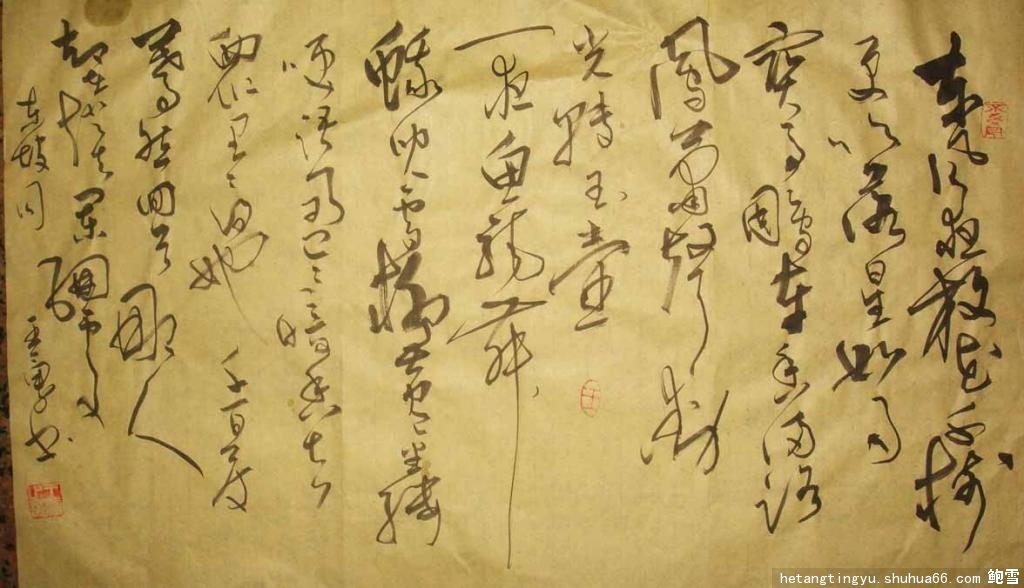 東風夜放花千樹
更吹落星如雨
寶馬雕車香滿路
鳳簫聲動
光轉玉壺
一夜魚龍舞
蛾兒雪柳黃金縷
笑語盈盈暗香去
衆里尋她千百度
驀然回首那人
却在灯火闌珊處
hetangtingyu.shuhua66.com 鲍雪